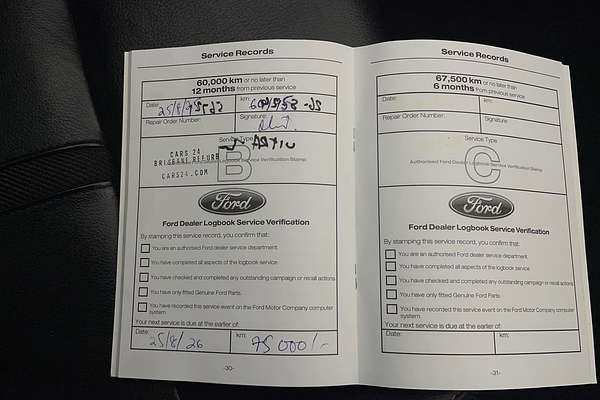 Service Records
60,000 km or no later than
12 months from previous service
Date: 25/8/
km:
Repair Order Number:
Signature:
Service Type
B
CARS 24
BRISBANE REFURB
CARS24.COM
Logbook Service Verification Stamp
Ford
Ford Dealer Logbook Service Verification
By stamping this service record, you confirm that:
You are an authorised Ford dealer service department.
You have completed all aspects of the logbook service.
You have checked and completed any outstanding campaign or recall actions.
You have only fitted Genuine Ford Parts.
You have recorded this service event on the Ford Motor Company computer
system
Your next service is due at the earlier of:
Date: 25/8/26
km: 75000/-
-30-
Service Records
67,500 km or no later than
6 months from previous service
Date:
km:
Repair Order Number:
Signature:
Service Type
C
Authorised Ford Dealer Logbook Service Verification Stamp
Ford
Ford Dealer Logbook Service Verification
By stamping this service record, you confirm that:
You are an authorised Ford dealer service department.
You have completed all aspects of the logbook service.
You have checked and completed any outstanding campaign or recall actions.
You have only fitted Genuine Ford Parts.
You have recorded this service event on the Ford Motor Company computer
system.
Your next service is due at the earlier of:
Date:
km:
-31-